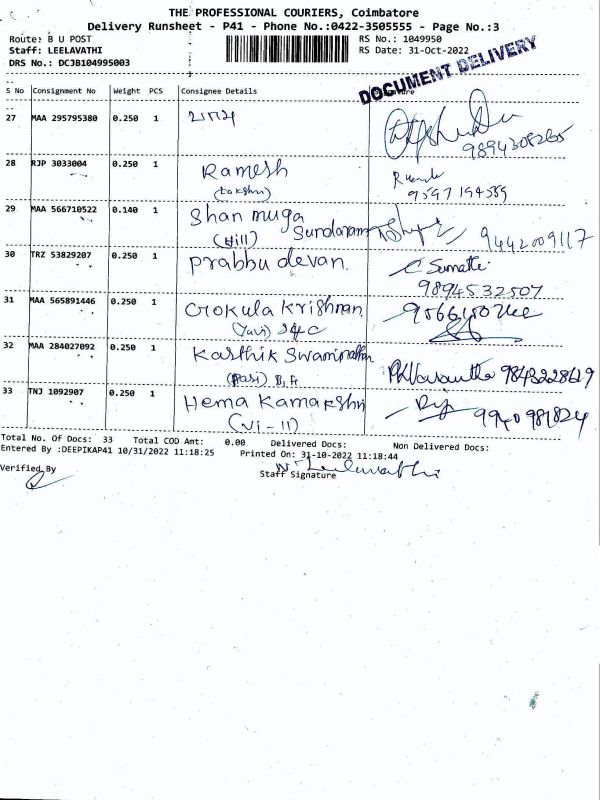 THE PROFESSIONAL COURIERS, Coimbatore
Delivery Runsheet - P41 - Phone No.:0422-3505555 - Page No.:3
Route: B U POST RS No.: 1049950
Staff: LEELAVATHI RS Date: 31-Oct-2022
DRS No.: DCJB104995003
DOCUMENT DELIVERY
S No Consignment No Weight PCS Consignee Details
27 MAA 295795380 0.250 1
9894308265
28 RJP 3033004 0.250 1 Ramesh
(Lakshri) 9597194589
29 MAA 566710522 0.140 1 Shanmuga
(Hill) Sundaram 9442009117
30 TRZ 53829207 0.250 1 Prabbu devan. C Sumathi
9894532507
31 MAA 565891446 0.250 1 Gokula Krishnan
32 MAA 284027092 0.250 1 Karthik Swaminathan
B, A Vasantha 9843228619
33 TNJ 1092907 0.250 1 Hema Kamakshri
(VI-11) 9940981824
Total No. Of Docs: 33 Total COD Amt: 0.00 Delivered Docs: Non Delivered Docs:
Entered By :DEEPIKAP41 10/31/2022 11:18:25 Printed On: 31-10-2022 11:18:44
Verified By Staff Signature